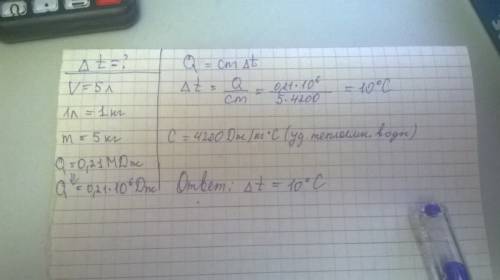 Δt = ?
V = 5л
1л = 1кг
m = 5кг
Q = 0,21 МДж
Q = 0,21·10⁶ Дж
Q = cmΔt
Δt = Q/cm = 0,21·10⁶/5·4200 = 10°C
C = 4200 Дж/кг°C (уд теплоемк воды)
Ответ: Δt = 10°C